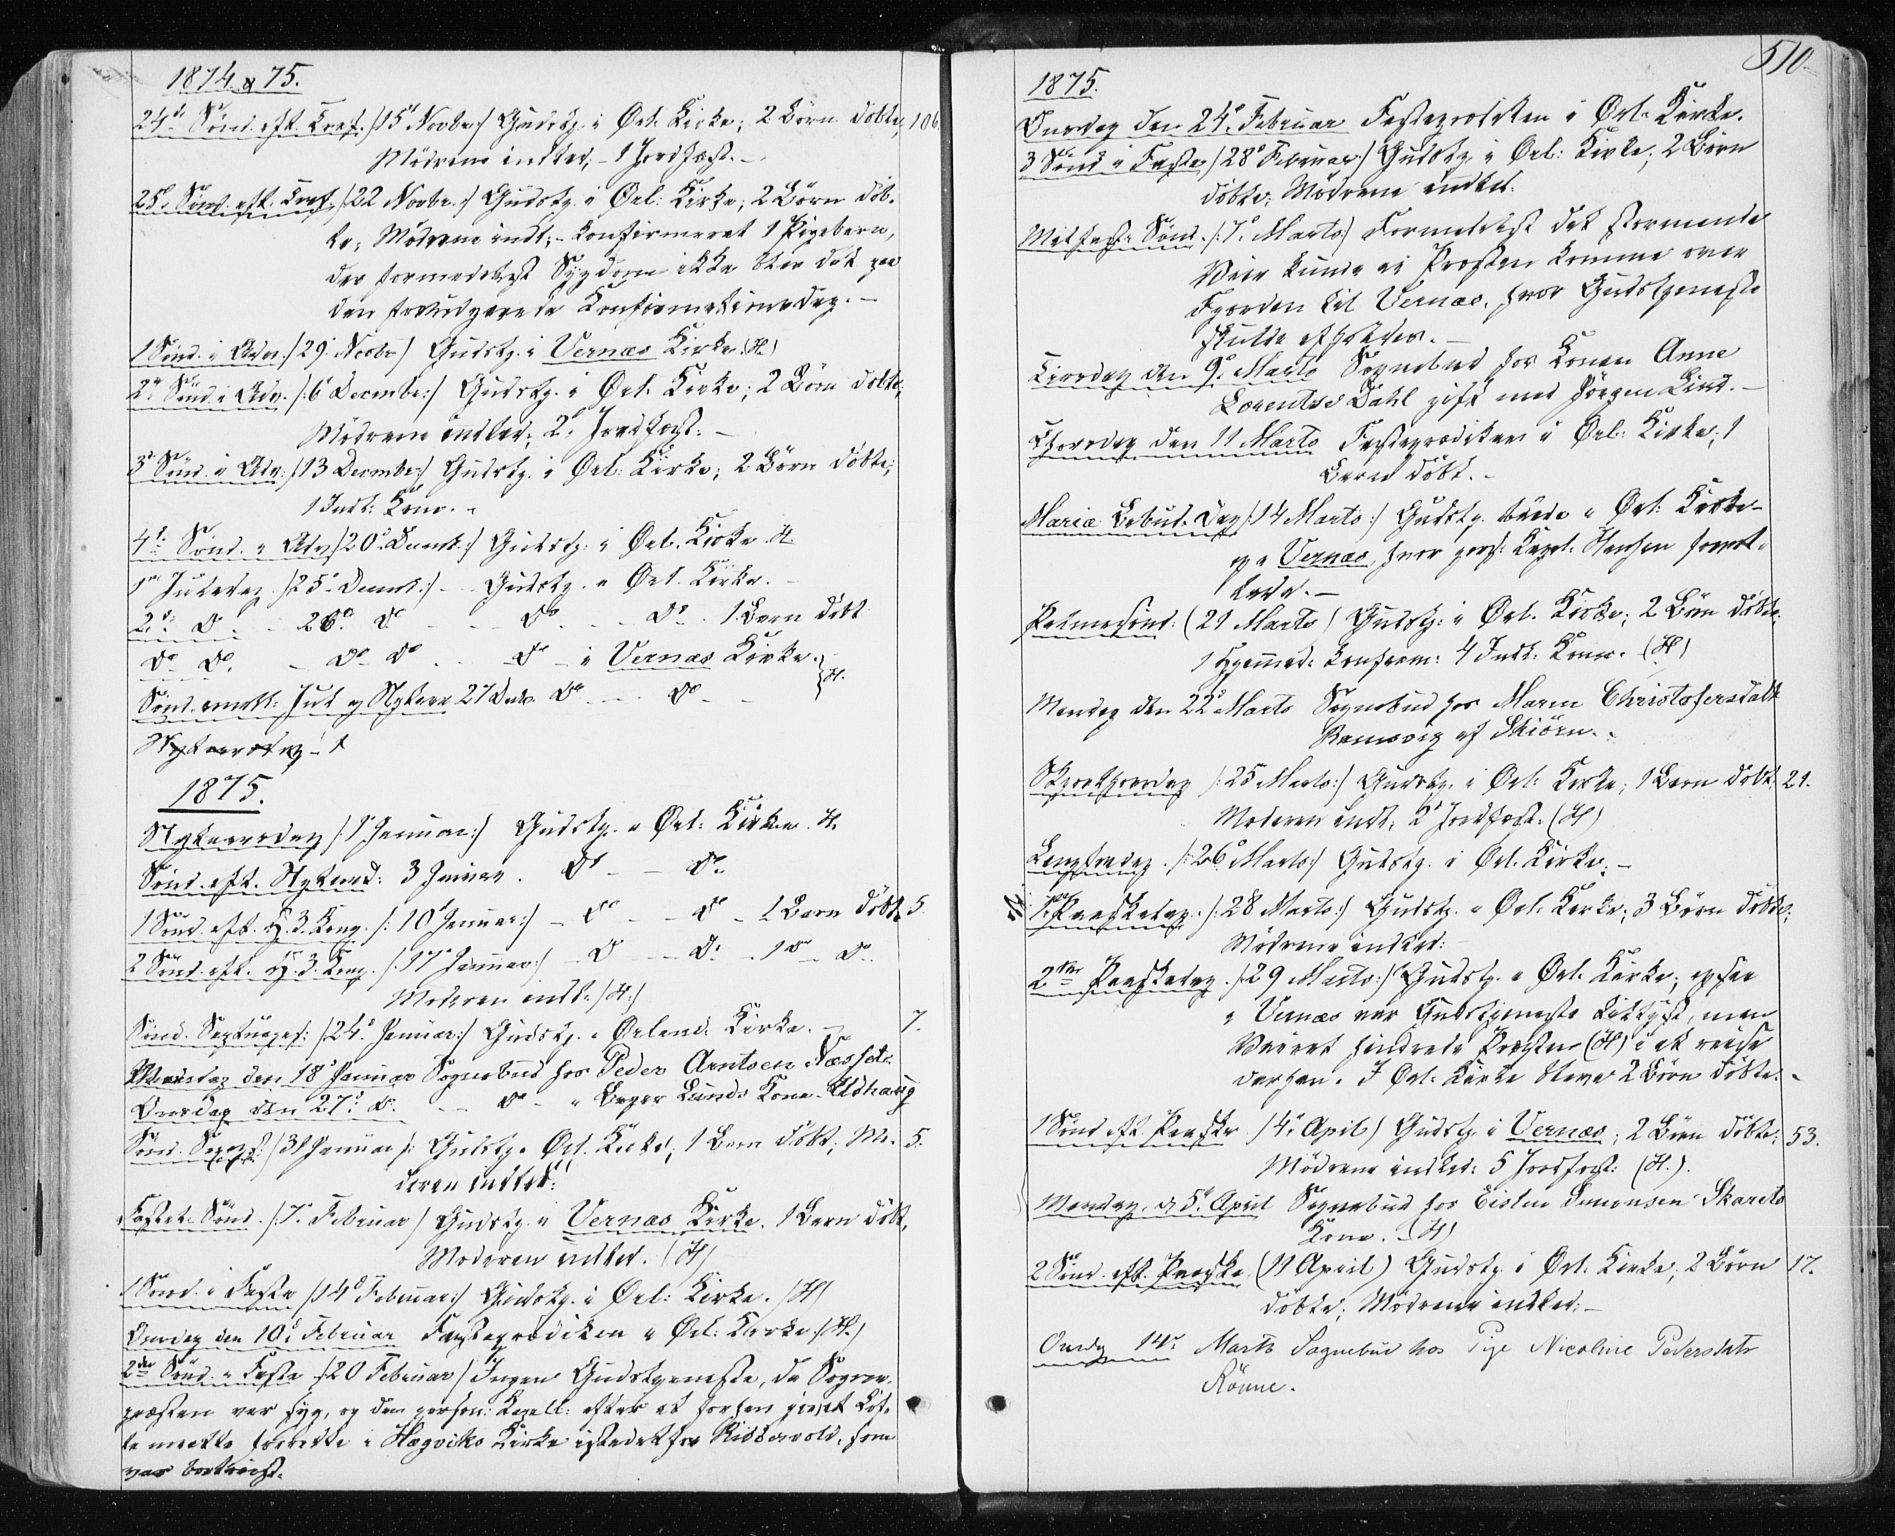 1874 & 75.
24de Sønd. eft. Tref. /:15de Novbr:/ Gudstj. i Ørl. Kirke; 2 Børn døbte, 106.
Mødrene indled; – 1 Jordfæst. –
25de Sønd. eft. Tref. /:22 Novbr.:/ Gudstj. i Ørl: Kirke; 2 Børn døb-
te; Mødrene indl; – konfirmeret 1 Pigebarn,
der formedelst Sygdom ikke blev det paa
den forudgaaende Konfirmationsdag. –
1 Sønd. i Adv. /:29. Novbr/ Gudstj. i Vernæs Kirke (H.)
2den Sønd. i Adv. /:6 December:/ Gudstj. i Ørl. Kirke; 2 Børn døbte,
Mødrene indled; 2 Jordfæst. –
3de Sønd. i Adv: /:13 Decembr:/ Gudstj. i Ørl: Kirke; 2 Børn døbte;
1 Indl: Kone. –
4de Sønd. i Adv /:20de Decmb:/ Gudstj. i Ørl. Kirke H.
1ste Juledag /:25de Decmb:/ – Gudstj. i Ørl. Kirke. –
2den Do – 26de Do – – Do – – Do – 1 Barn døbt
Do Do. – Do Do – – Do – i Vernæs Kirke.
Sønd. mell: Jul og Nytaar 27 Decb. Do – – Do – – H.
Nytaarsdag – 1
1875.
Nytaarsdag /:1 Januar:/ Gudstj. i Ørl: Kirke. H.
Sønd. eft. Nytaar: 3 Januar. Do – – Do.
1 Sønd. eft. H. 3. Kong. /:10de Januar:/ – Do – – Do – 1 Barn døbt 5.
2 Sønd. eft. H. 3. Kong. /:17de Januar:/ – Do – – Do – 1 Do – Do.
Moderen indl: /H:/
Sønd. Septuages: /:24de Januar:/ Gudstj. i Ørland. Kirke. – 7.
den 18de Januar Sognebud hos Peder Arntsen Næsset.
Onsdag den 27de Do. – – Do – " Lunds Kone – Udhaug
Sønd. Sexages: /:31 Januar/: Gudstj. i Ørl. Kirke; 1 Barn døbt; Mo- 5.
deren indled:
Fastel. Sønd. /:7de Februar/ Gudstj. i Vernæs Kirke. 1 Barn døbt,
Moderen indled. (H)
1 Sønd. i Faste /:14de Februar:/ Gudstj. i Ørl: Kirke. (H)
Onsdag den 10de Februar Fasteprædiken i Ørl: Kirke (H.)
2den Sønd. i Faste /:20 Februar/ Ingen Gudstjeneste, da Sogne-
præsten var syg, og den person: Kapell: efter
maatte forrette i Hægviks Kirke istedetfor Riddervold, som
var bortreist.
510
1875.
Onsdag den 24de Februar Fasteprædiken i Ørl. Kirke.
3 Sønd. i Faste /:28de Februar:/ Gudstj. i Ørl: Kirke; 2 Børn
døbte; Mødrene indled.
Midfaste Sønd. /:7de Marts:/ Formedelst det stormende
Veir kunde ei Præsten komme over
Fjorden til Vernæs, hvor Gudstjeneste
skulde afholdes. –
Tirsdag den 9de Marts Sognebud hos Konen Anne
Lorentse Dahl gift med Jørgen Lund. –
Thorsdag den 11 Marts Fasteprædiken i Ørl: Kirke; 1
Barn døbt. –
Mariæ Bebud. Dag /:14 Marts:/ Gudstj. baade i Ørl: Kirke
og i Vernæs, hvor pers: Kapel. Hansen forret-
tede. –
Palmesønd: (21 Marts) Gudstj: i Ørl. Kirke; 2 Børn døbte.
1 Hjemmed: konfirm: 4 Indl: Koner. (H)
Mandag den 22de Marts Sognebud hos Maren Christofersdatt
Ramsvig af Skiørn. –
Skjærthorsdag /:25 Marts:/ Gudstj. i Ørl: Kirke; 1 Barn døbt; 21.
Moderen indl; 2 Jordfæst. (H)
Langfredag. /:26de Marts:/ Gudstj. i Ørl. Kirke. –
1ste Paaskedag. /:28 Marts:/ Gudstj. i Ørl. Kirke; 3 Børn døbte.
Mødrene indled: –
2den Paaskedag. /:29 Marts:/ Gudstj. i Ørl. Kirke; ogsaa
i Vernæs var Gudstjeneste tillyst, men
Veiret hindrede Præsten (H) i at reise
derhen. I Ørl: Kirke bleve 2 Børn døbte. –
1 Sønd. eft. Paaske /:4de April/ Gudstj. i Vernæs; 2 Børn døbte; 53.
Mødrene indled: 5 Jordfæst: (H.).
Mandag d. 5de April Sognebud hos Eisten Simonsen Skarets
Kone. – (H)
2 Sønd. eft. Paaske. (11 April) Gudstj. i Ørl. Kirke; 2 Børn 17.
døbte; Mødrene indled: –
Onsdg 14de Marts Sognebud hos Pige Nicoline Pedersdatr
Rönne.